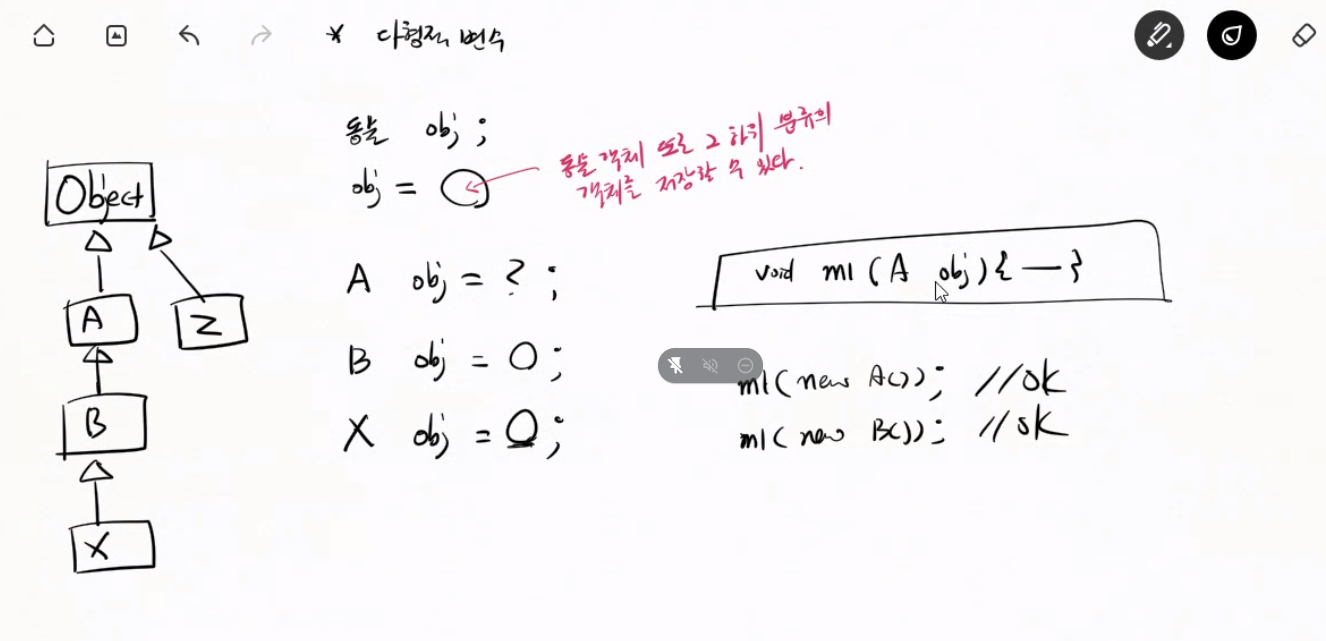 * 다형적 변수
동물 obj ;
obj =
동물 객체 또는 그 하위 분류의
객체를 저장할 수 있다.
Object
A
Z
B
X
A obj = ? ;
B obj = O ;
X obj = O ;
void m1 ( A obj ) { — }
m1 ( new A()); //ok
m1 ( new B()); //ok